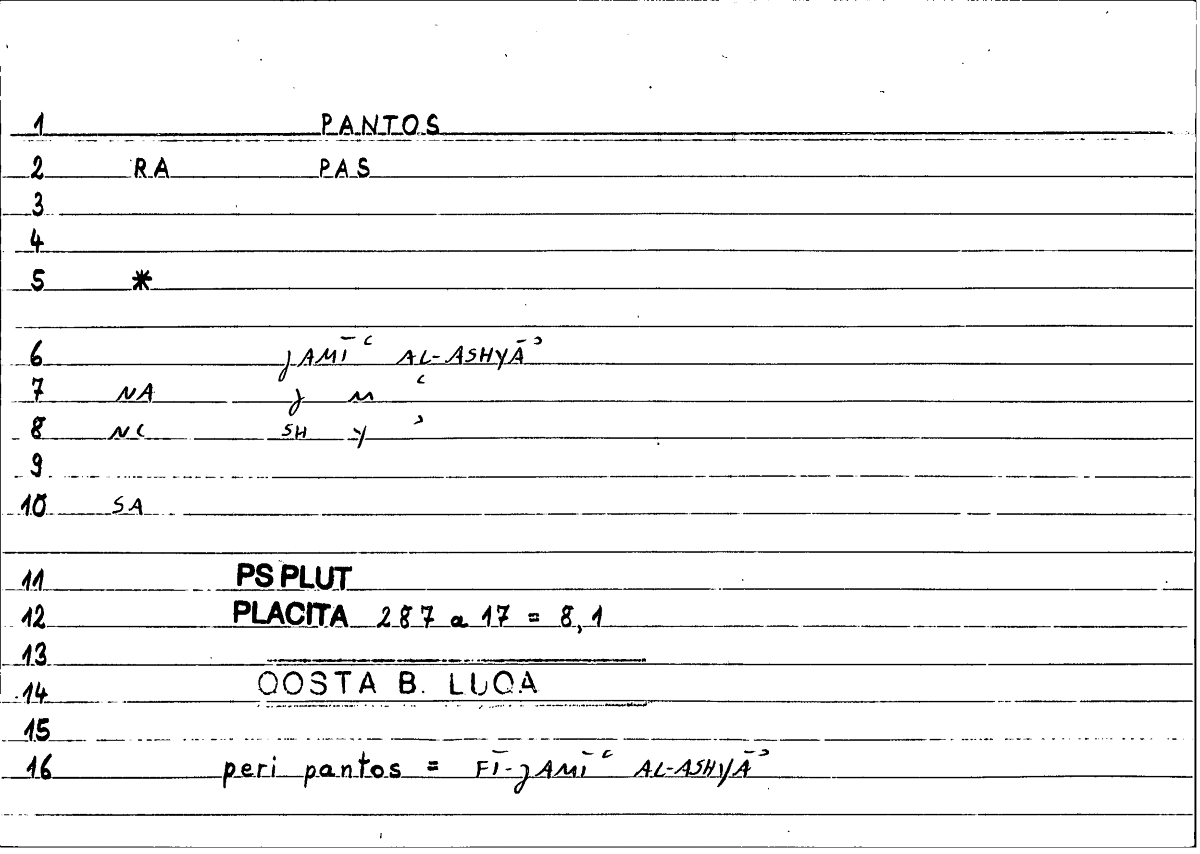 1 PANTOS
2 RA PAS
3
4
5 *
6 jAMĪʿ AL-ASHYĀʾ
7 NA j M ʿ
8 NC SH Y ʾ
9
10 SA
11 PS PLUT
12 PLACITA 287 a 17 = 8,1
13
14 QOSTA B. LUQA
15
16 peri pantos = FĪ-jAMĪʿ AL-ASHYĀʾ